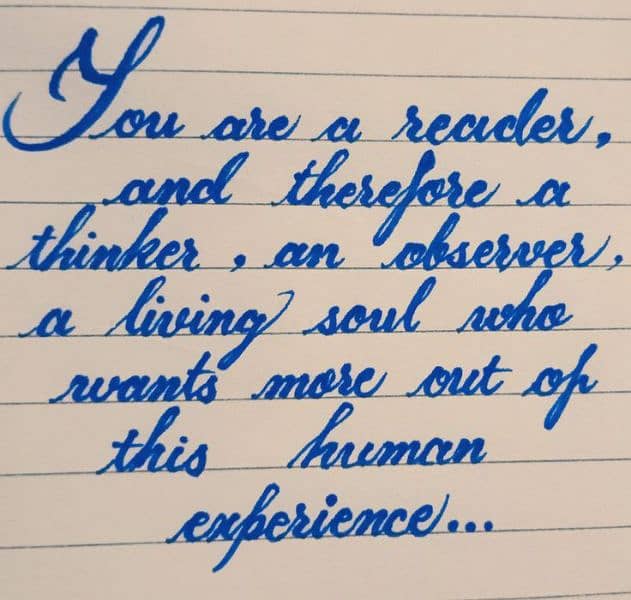 You are a reader,
and therefore a
thinker, an observer,
a living soul who
wants more out of
this human
experience...